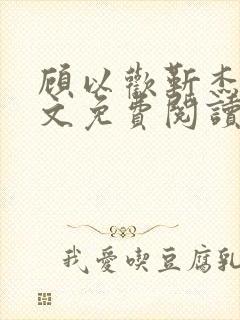 顾以歡靳杰
文免費閱讀
我愛喫豆腐乳